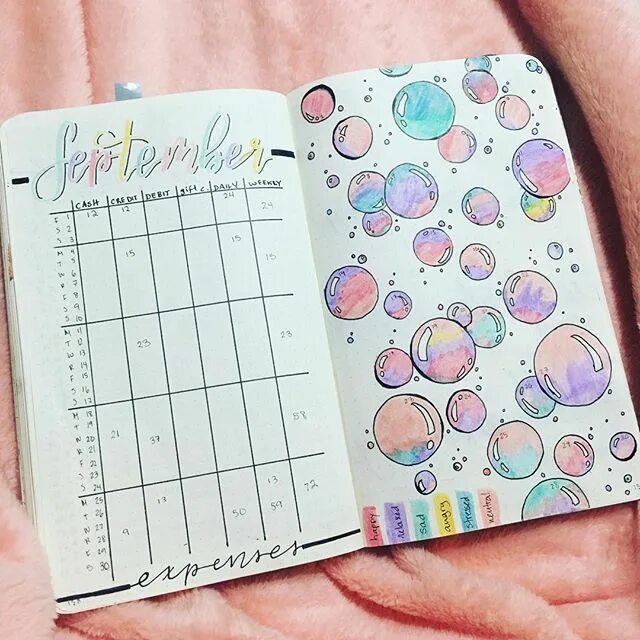 September
CASH CREDIT DEBIT gift c. DAILY WEEKLY
F 1 12 12 24 24
S 2
S 3
M 4 15 15
T 5 15
W 6
R 7
F 8
S 9
S 10
M 11 23 23
T 12
W 13
R 14
F 15
S 16
S 17
M 18 58
T 19
W 20 21 37
R 21
F 22
S 23
S 24
M 25 13 13 72
T 26 50 59
W 27
R 28 9
F 29
S 30
expenses
happy
relaxed
sad
angry
stressed
neutral